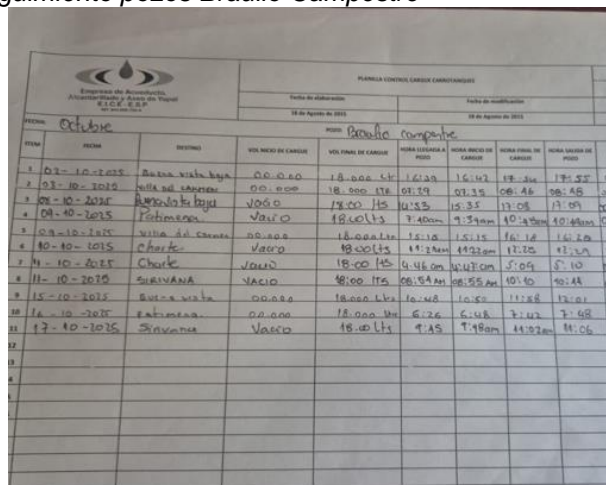 guimiento pozos Braulio Campestre
PLANILLA CONTROL CARGUE CARROTANQUES
Empresa de Acueducto,
Alcantarillado y Aseo de Yopal
E.I.C.E - E.S.P
Fecha de elaboración Fecha de modificación
18 de Agosto de 2015 18 de Agosto de 2015
FECHA: Octubre POZO Braulio campestre
ITEM FECHA DESTINO VOL INICIO DE CARGUE VOL FINAL DE CARGUE HORA LLEGADA A POZO HORA INICIO DE CARGUE HORA FINAL DE CARGUE HORA SALIDA DE POZO
1 02-10-2025 Buena vista baja 00.000 18.000 Lt 16:39 16:42 17:55
2 03-10-2025 villa del carmen 00.000 18.000 Lts 07:29 07:35 08:46 08:48
3 08-10-2025 Buenavista baja Vacio 18:00 lts 14:53 15:35 17:08 17:09
4 09-10-2025 Patimena Vacio 18.00 Lts 7:40am 9:39am 10:48am 10:49am
5 09-10-2025 villa del Carmen 00.000 18.000 Ltr 15:10 15:15 16:18 16:20
6 10-10-2025 Charte Vacro 18:00 Lts 11:21am 11:22am 12:28 12:29
7 11-10-2025 Charte Vacio 18-00 lts 4:46 am 4:47 am 5:09 5:10
8 11-10-2025 SIRIVANA VACIO 18:00 ITS 08:54 AM 08:55 AM 10:10 10:11
9 15-10-2025 Buena vista 00.000 18.000 Lts 10:48 10:50 11:58 12:01
10 16-10-2025 Patimena 00.000 18.000 Ltr 6:26 6:48 7:42 7:48
11 17-10-2025 Sirivana Vacio 18.00 Lts 9:45 9:48am 11:02am 11:06
12
13